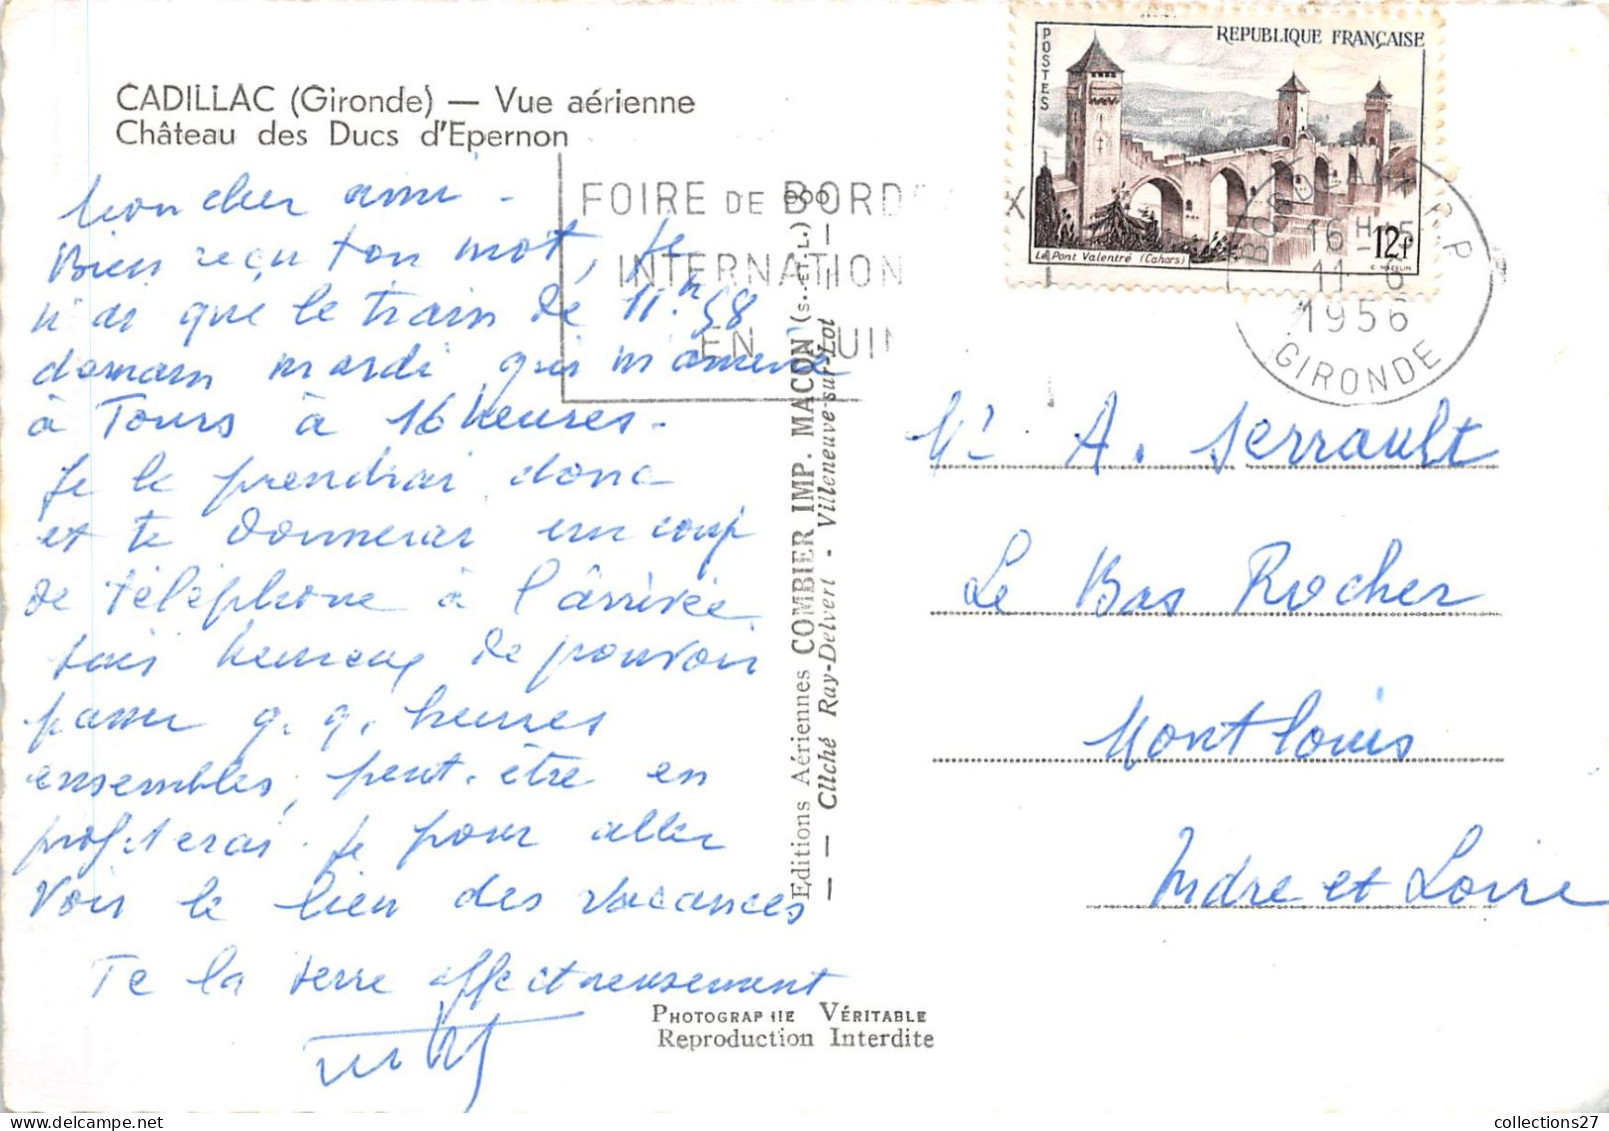 CADILLAC (Gironde) — Vue aérienne
Château des Ducs d'Epernon
Mon cher ami -
Bien reçu ton mot, Je
n'ai que le train de 11.h 58
demain mardi qui m'amène
à Tours à 16 heures.
Je le prendrai donc
et te donnerai un coup
de téléphone à l'arrivée
suis heureux de pouvoir
passer q. q. heures
ensembles, peut-être en
profiterai-je pour aller
voir le lieu des vacances
Te la serre affectueusement
FOIRE DE BORD X
INTERNATION
EN JUIN
REPUBLIQUE FRANÇAISE
POSTES
Le Pont Valentré (Cahors)
12F
C. MAZELIN
BORDEAUX R.P
16 H 15
11 - 6
1956
GIRONDE
Editions Aériennes COMBIER IMP. MACON (S.-et-L.)
— Cliché Ray-Delvert - Villeneuve-sur-Lot —
Mr A. Serrault
Le Bas Rocher
Montlouis
Indre et Loire
PHOTOGRAPHIE VÉRITABLE
Reproduction Interdite
collections27